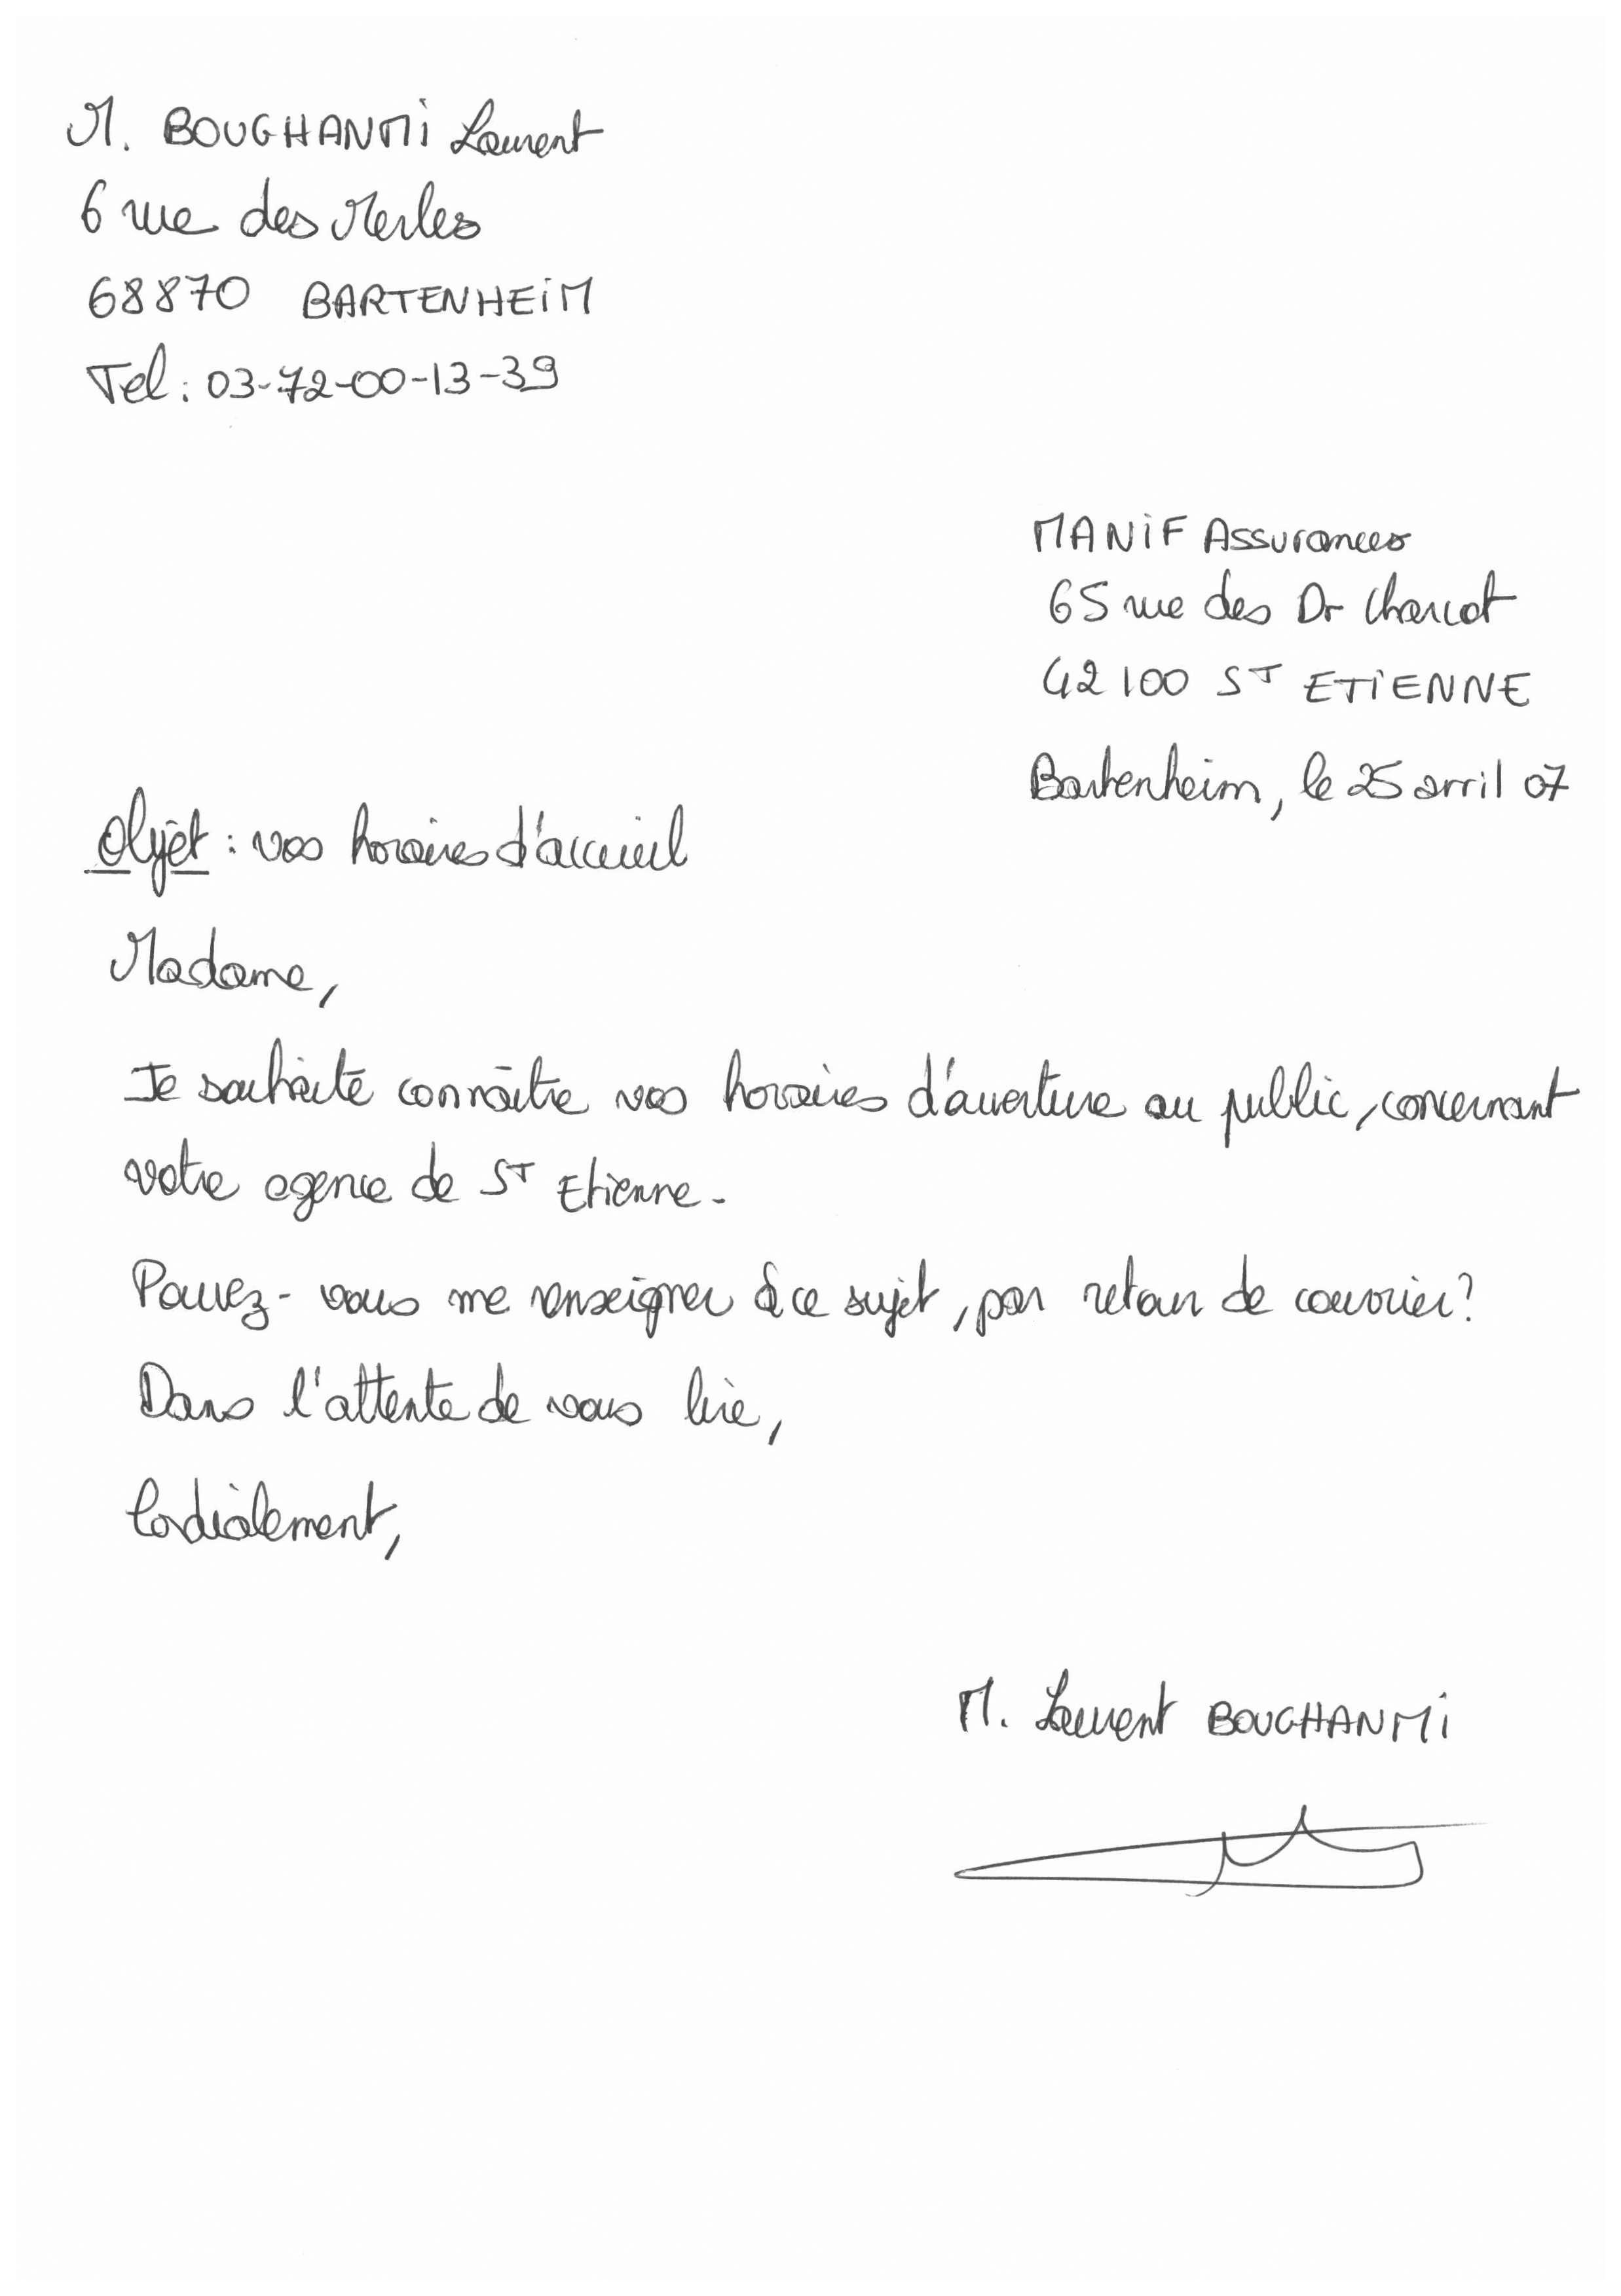 M. BOUGHANMI Laurent
6 rue des Merles
68870 BARTENHEIM
Tel : 03-72-00-13-39
MANIF Assurances
65 rue des Dr Charcot
42100 ST ETIENNE
Bartenheim, le 25 avril 07
Objet : vos horaires d'accueil
Madame,
Je souhaite connaître vos horaires d'ouverture au public, concernant
votre agence de ST Etienne.
Pouvez-vous me renseigner à ce sujet, par retour de courrier ?
Dans l'attente de vous lire,
Cordialement,
M. Laurent BOUGHANMI